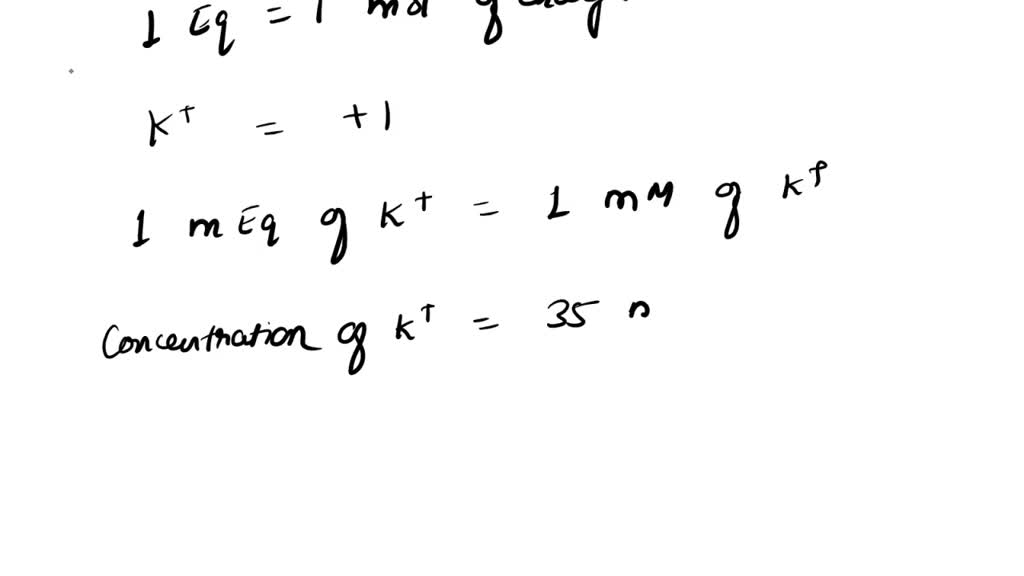 1 Eq = 1 mol of
K+ = +1
1 mEq of K+ = 1 mM of K+
Concentration of K+ = 35